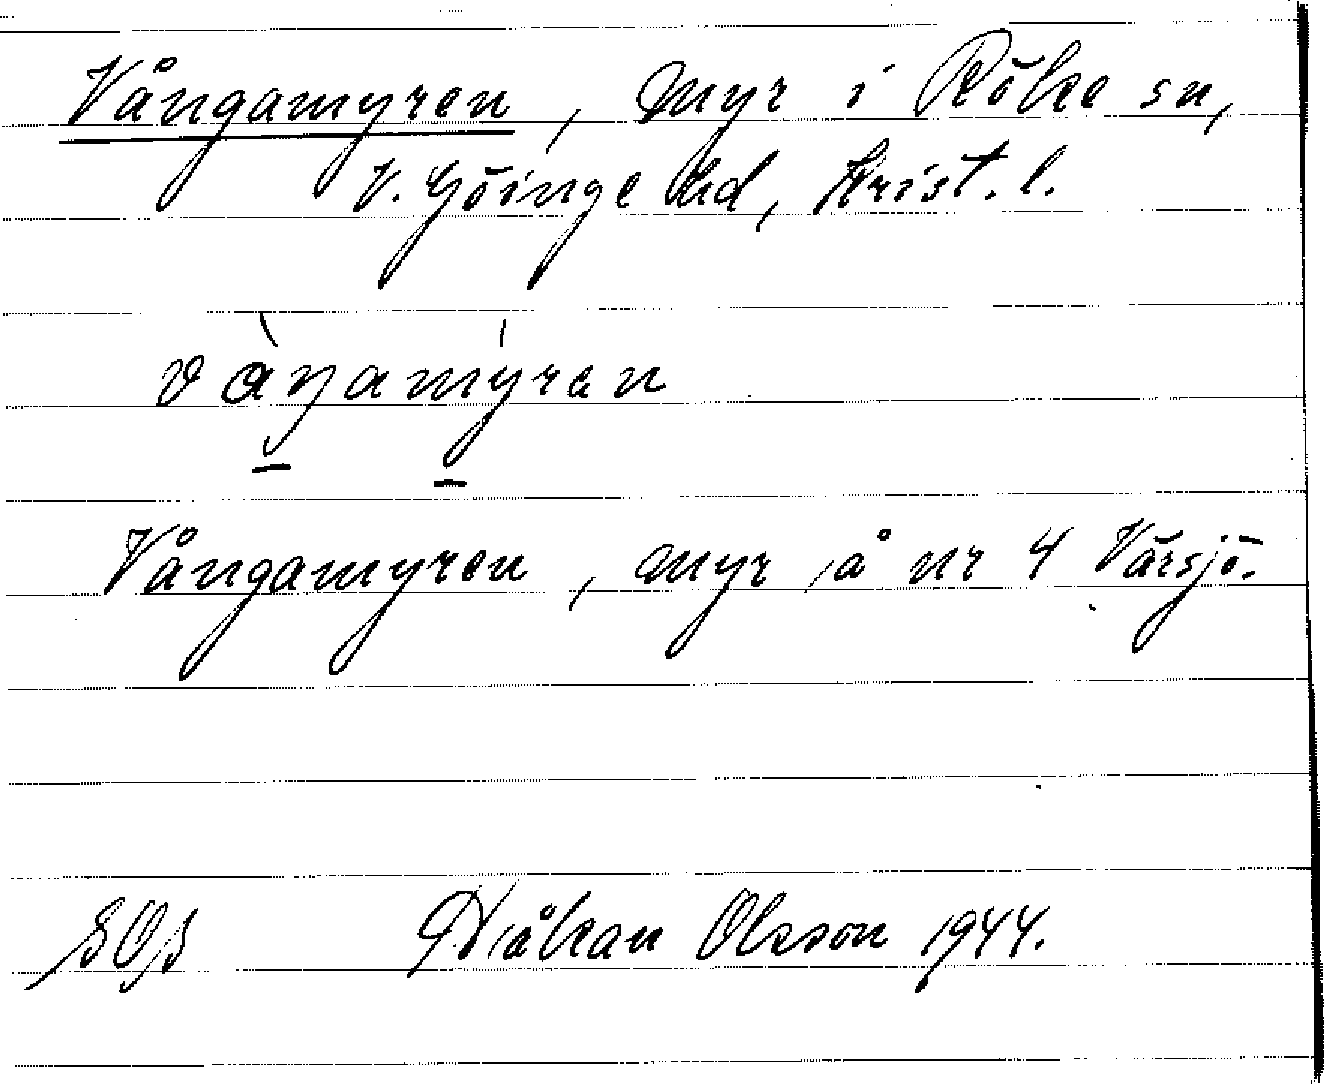 Vångamyren, myr i Röke sn,
V. Göinge hd, Krist. l.
vàŋamýrən
Vångamyren, myr å nr 4 Värsjö.
Håkan Olsson 1944.